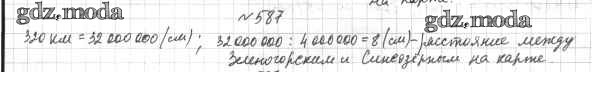 на карте.
gdz.moda
№587
gdz.moda
320 км = 32 000 000 (см); 32 000 000 : 4 000 000 = 8 (см) - расстояние между
Зеленогорским и Синеозёрным на карте.